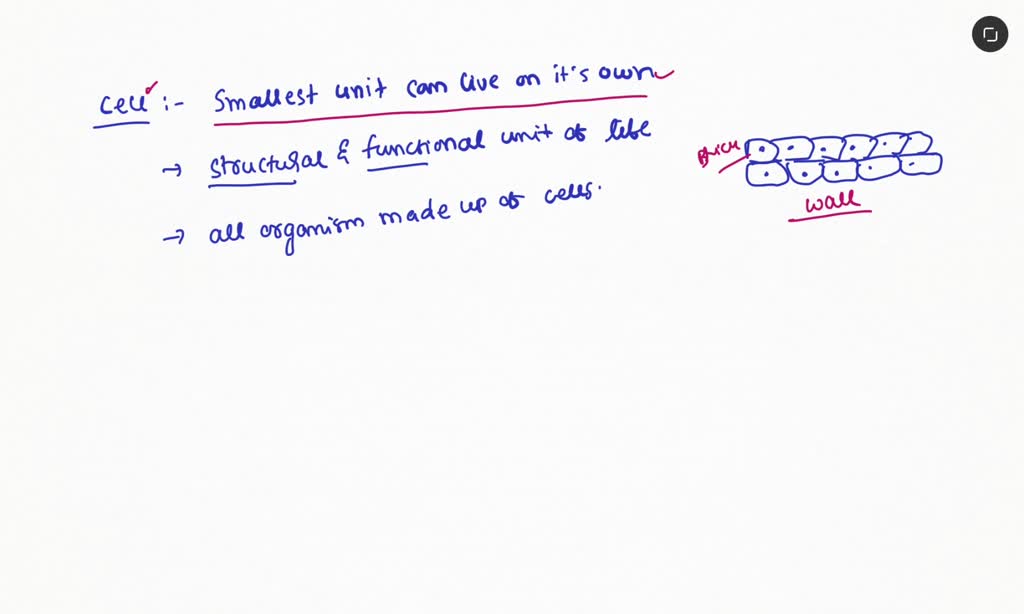 Cell :- Smallest unit can live on it's own
→ structural & functional unit of life
→ all organism made up of cells.
Brick
wall